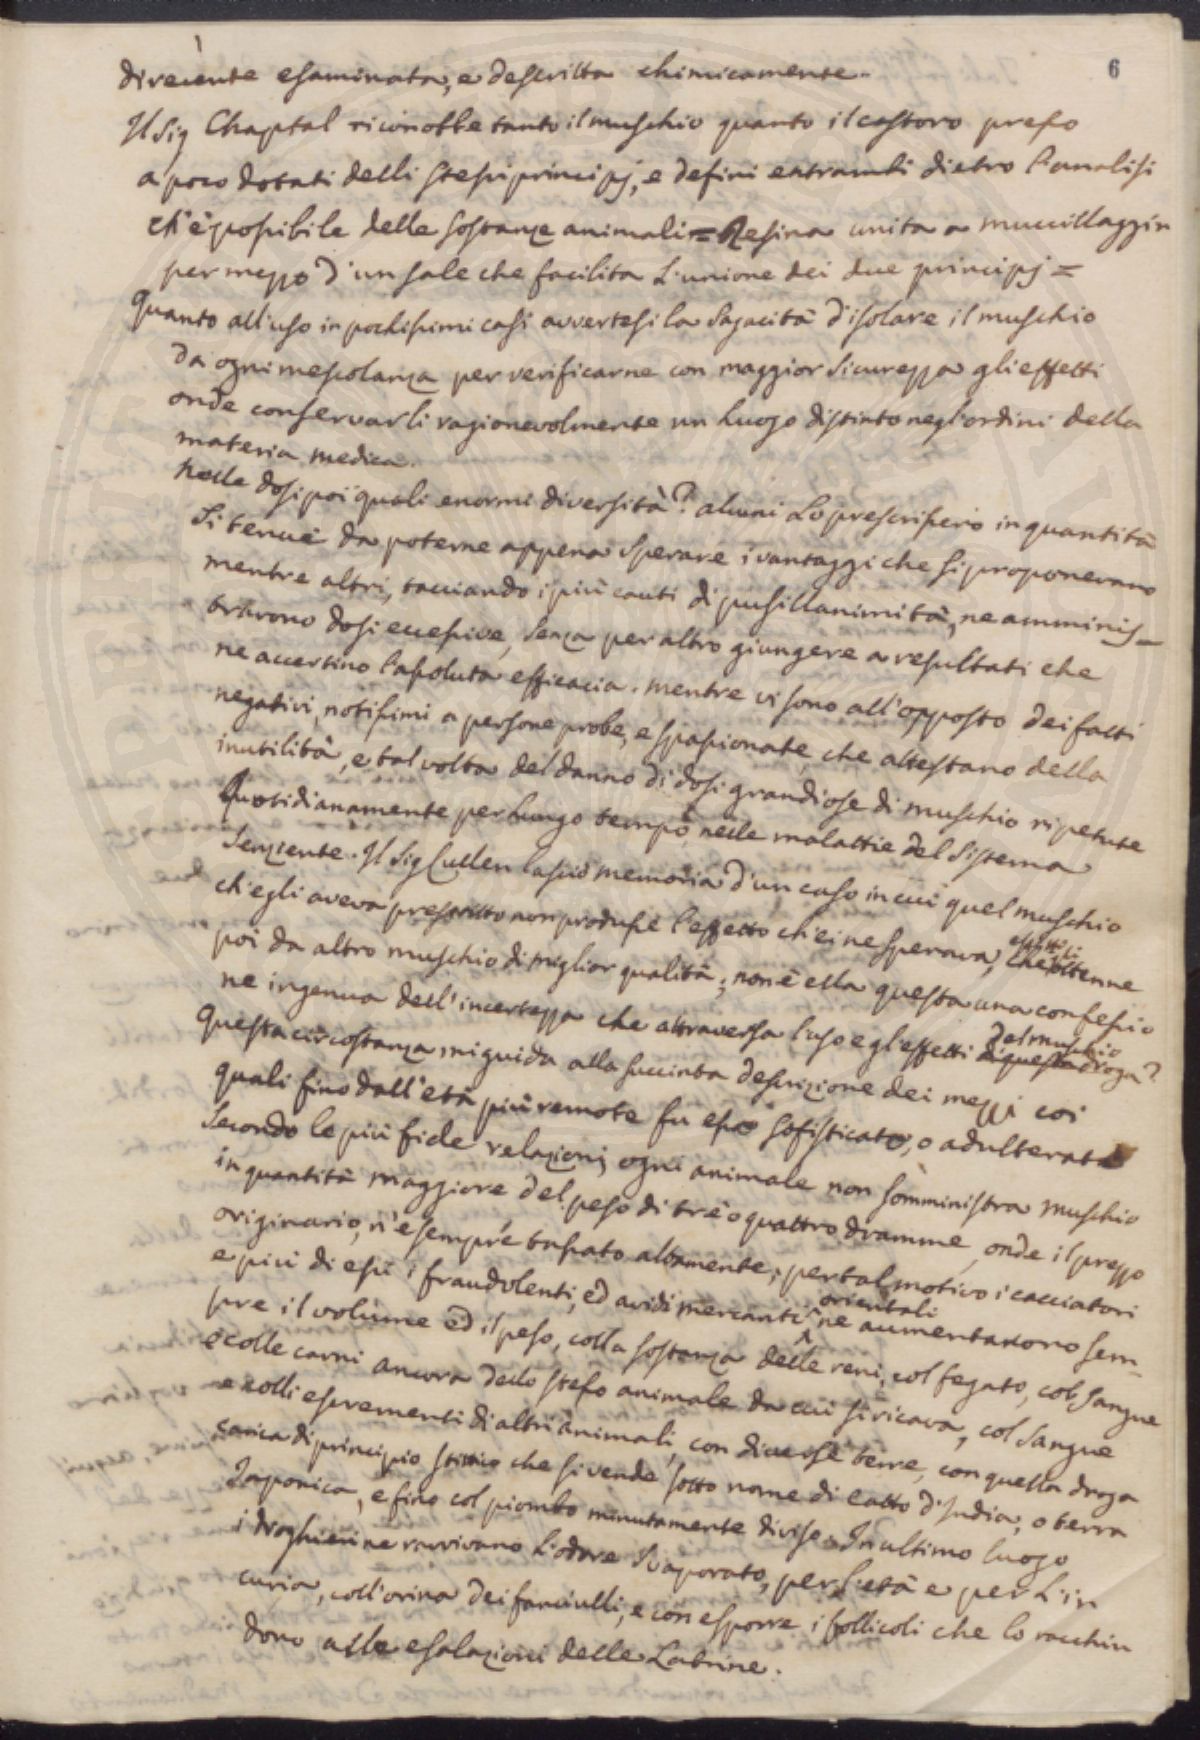 6
direcente esaminata, e descritta chimicamente.
Il Sig Chaptal riconobbe tanto il muschio quanto il castoro presso
a poco dotati delli stessi principj, e definì entrambi dietro l'analisi
ch'è possibile delle sostanze animali = Resina unita a muccillaggin
per mezzo d'un sale che facilita l'unione dei due principj =
Quanto all'uso in pochissimi casi avvertesi la sagacità d'isolare il muschio
da ogni mescolanza per verificarne con maggior sicurezza gli effetti
onde conservarli ragionevolmente un luogo distinto negl'ordini della
materia medica.
Nelle dosi poi quali enormi diversità? alcuni lo prescrissero in quantità
sì tenue da poterne appena sperare i vantaggi che si proponevano
mentre altri, tacciando i più cauti di pusillanimità, ne amminis-
trarono dosi eccessive, senza per altro giungere a resultati che
ne accertino l'assoluta efficacia. mentre vi sono all'opposto dei fatti
negativi, notissimi a persone probe, e spassionate, che attestano della
inutilità, e tal volta del danno di dosi grandiose di muschio ripetute
Quotidianamente per lungo tempo, nelle malattie del Sistema
Senziente. Il Sig Cullen lasciò memoria d'un caso in cui quel muschio
ch'egli aveva prescritto non produsse l'effetto ch'ei ne sperava, che ottenne
poi da altro muschio di miglior qualità; non è ella questa una confessio
ne ingenua dell'incertezza che attraversa l'uso e gl'effetti del muschio di questa droga?
Questa circostanza mi guida alla succinta descrizione dei mezzi coi
quali fino dall'età più remote fu esso sofisticato, o adulterato
Secondo le più fide relazioni, ogni animale non somministra muschio
in quantità maggiore del peso di tre o quattro dramme, onde il prezzo
originario, n'è sempre tassato altamente; per tal motivo i cacciatori
e più di essi i fraudolenti, ed avidi mercanti orientali ne aumentarono sem-
pre il volume ed il peso, colla sostanza delle reni, col fegato, col sangue
e colle carni ancora dello stesso animale da cui si ricava, col sangue
e colli escrementi di altri animali, con diverse terre, con quella droga
carica di principio stittico che si vende sotto nome di Catto d'India, o terra
Japonica, e fino col piombo minutamente diviso. In ultimo luogo
i droghieri ne ravvivano l'odore svaporato, per l'età e per l'in
curia, coll'orina dei fanciulli, e con esporre i follicoli che lo racchiu
dono alle esalazioni delle Latrine.